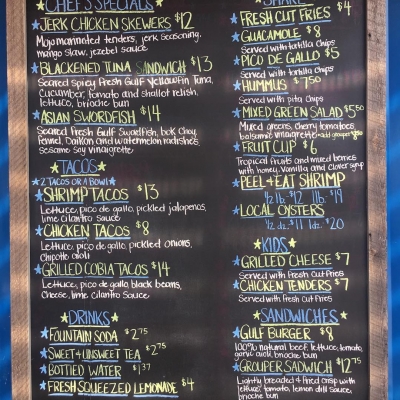 CHEF'S SPECIALS
JERK CHICKEN SKEWERS $12
Mojo marinated tenders, jerk seasoning,
mango slaw, jezebel sauce
BLACKENED TUNA SANDWICH $13
Seared spicy fresh Gulf Yellowfin Tuna,
cucumber, tomato and shallot relish,
lettuce, brioche bun
ASIAN SWORDFISH $14
Seared Fresh Gulf Swordfish, bok choy,
fennel, Daikon and watermelon radishes,
sesame soy vinaigrette
TACOS
2 TACOS OR A BOWL
SHRIMP TACOS $13
Lettuce, pico de gallo, pickled jalapenos,
lime cilantro sauce
CHICKEN TACOS $8
Lettuce, pico de gallo, pickled onions,
chipotle aioli
GRILLED COBIA TACOS $14
Lettuce, pico de gallo, black beans,
cheese, lime cilantro sauce
DRINKS
FOUNTAIN SODA $2.75
SWEET & UNSWEET TEA $2.75
BOTTLED WATER $1.37
FRESH SQUEEZED LEMONADE $4
SHARE
FRESH CUT FRIES $4
GUACAMOLE $8
Served with tortilla chips
PICO DE GALLO $5
Served with tortilla chips
HUMMUS $7.50
Served with pita chips
MIXED GREEN SALAD $5.50
Mixed greens, cherry tomatoes,
balsamic vinaigrette add grouper
FRUIT CUP $6
Tropical fruits and mixed berries
with honey, vanilla, and clover syrup
PEEL & EAT SHRIMP
1/2 lb. $12 1 lb. $19
LOCAL OYSTERS
1/2 dz. $11 1 dz. $20
KIDS
GRILLED CHEESE $7
Served with fresh cut fries
CHICKEN TENDERS $7
Served with fresh cut fries
SANDWICHES
GULF BURGER $8
100% natural beef, lettuce, tomato,
garlic aioli, brioche bun
GROUPER SADWICH $12.75
Lightly breaded & fried crisp with
lettuce, tomato, lemon dill sauce,
brioche bun